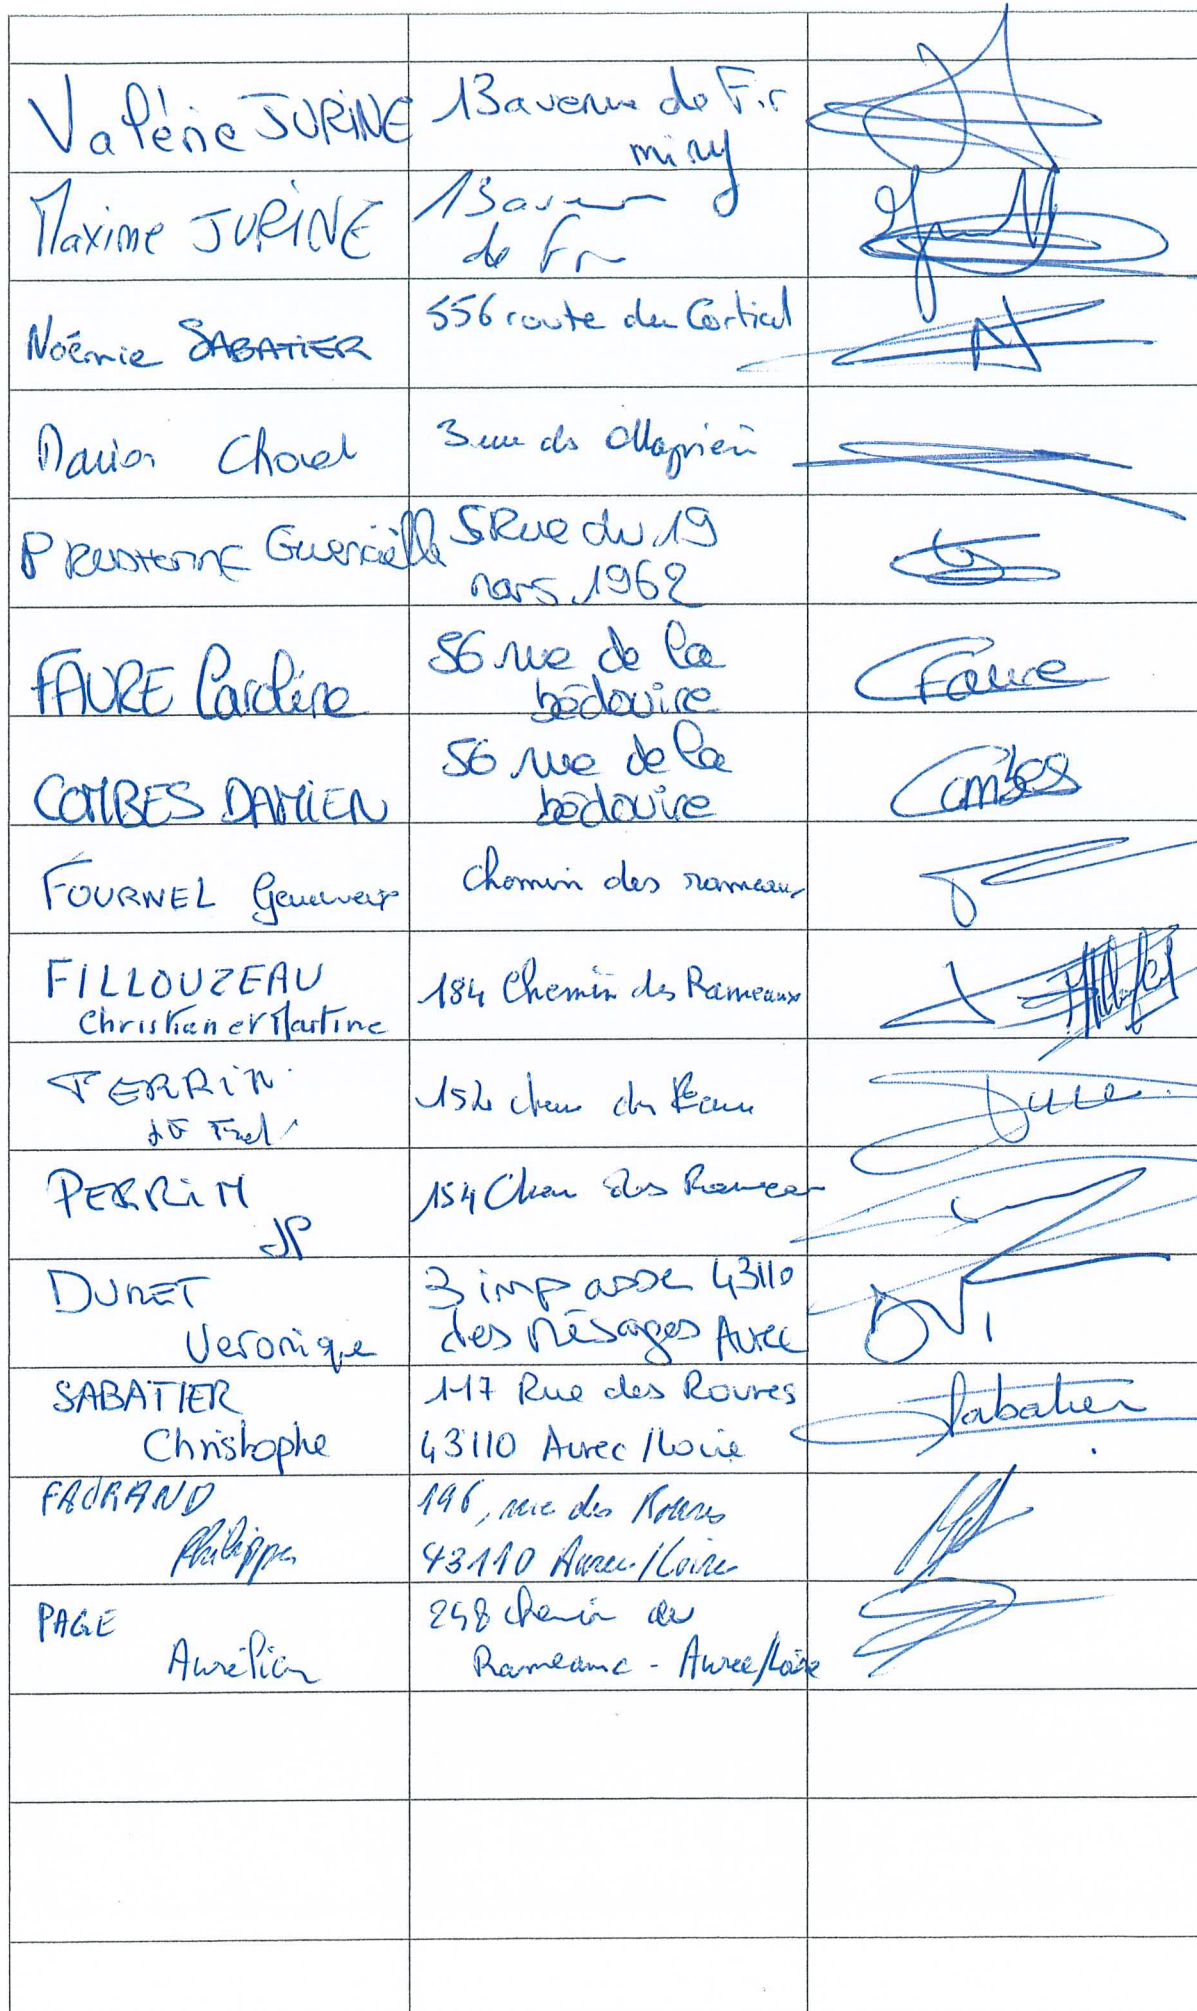 Valérie JURINE
13 avenue de Fir
miny
Maxime JURINE
13 avenue
de Fir
Noémie SABATIER
556 route du Cortial
Marion Chovel
3 rue des
5 Rue du 19
mars 1962
FAURE Caroline
56 rue de la
bédouire
CFaure
COMBES DAMIEN
56 rue de la
bédouire
Combes
FOURNEL
chemin des rameaux
FILLOUZEAU
Christian et Martine
184 Chemin des Rameaux
PERRIN
PERRIN
JP
154 Chem des Rameaux
DURET
Veronique
3 impasse 43110
des Mésages Aurec
SABATIER
Christophe
117 Rue des Roures
43110 Aurec/Loire
Sabatier
FAURAND
Philippe
196, rue des Roures
43110 Aurec/Loire
PAGE
Aurélien
248 chemin des
Rameaux - Aurec/Loire